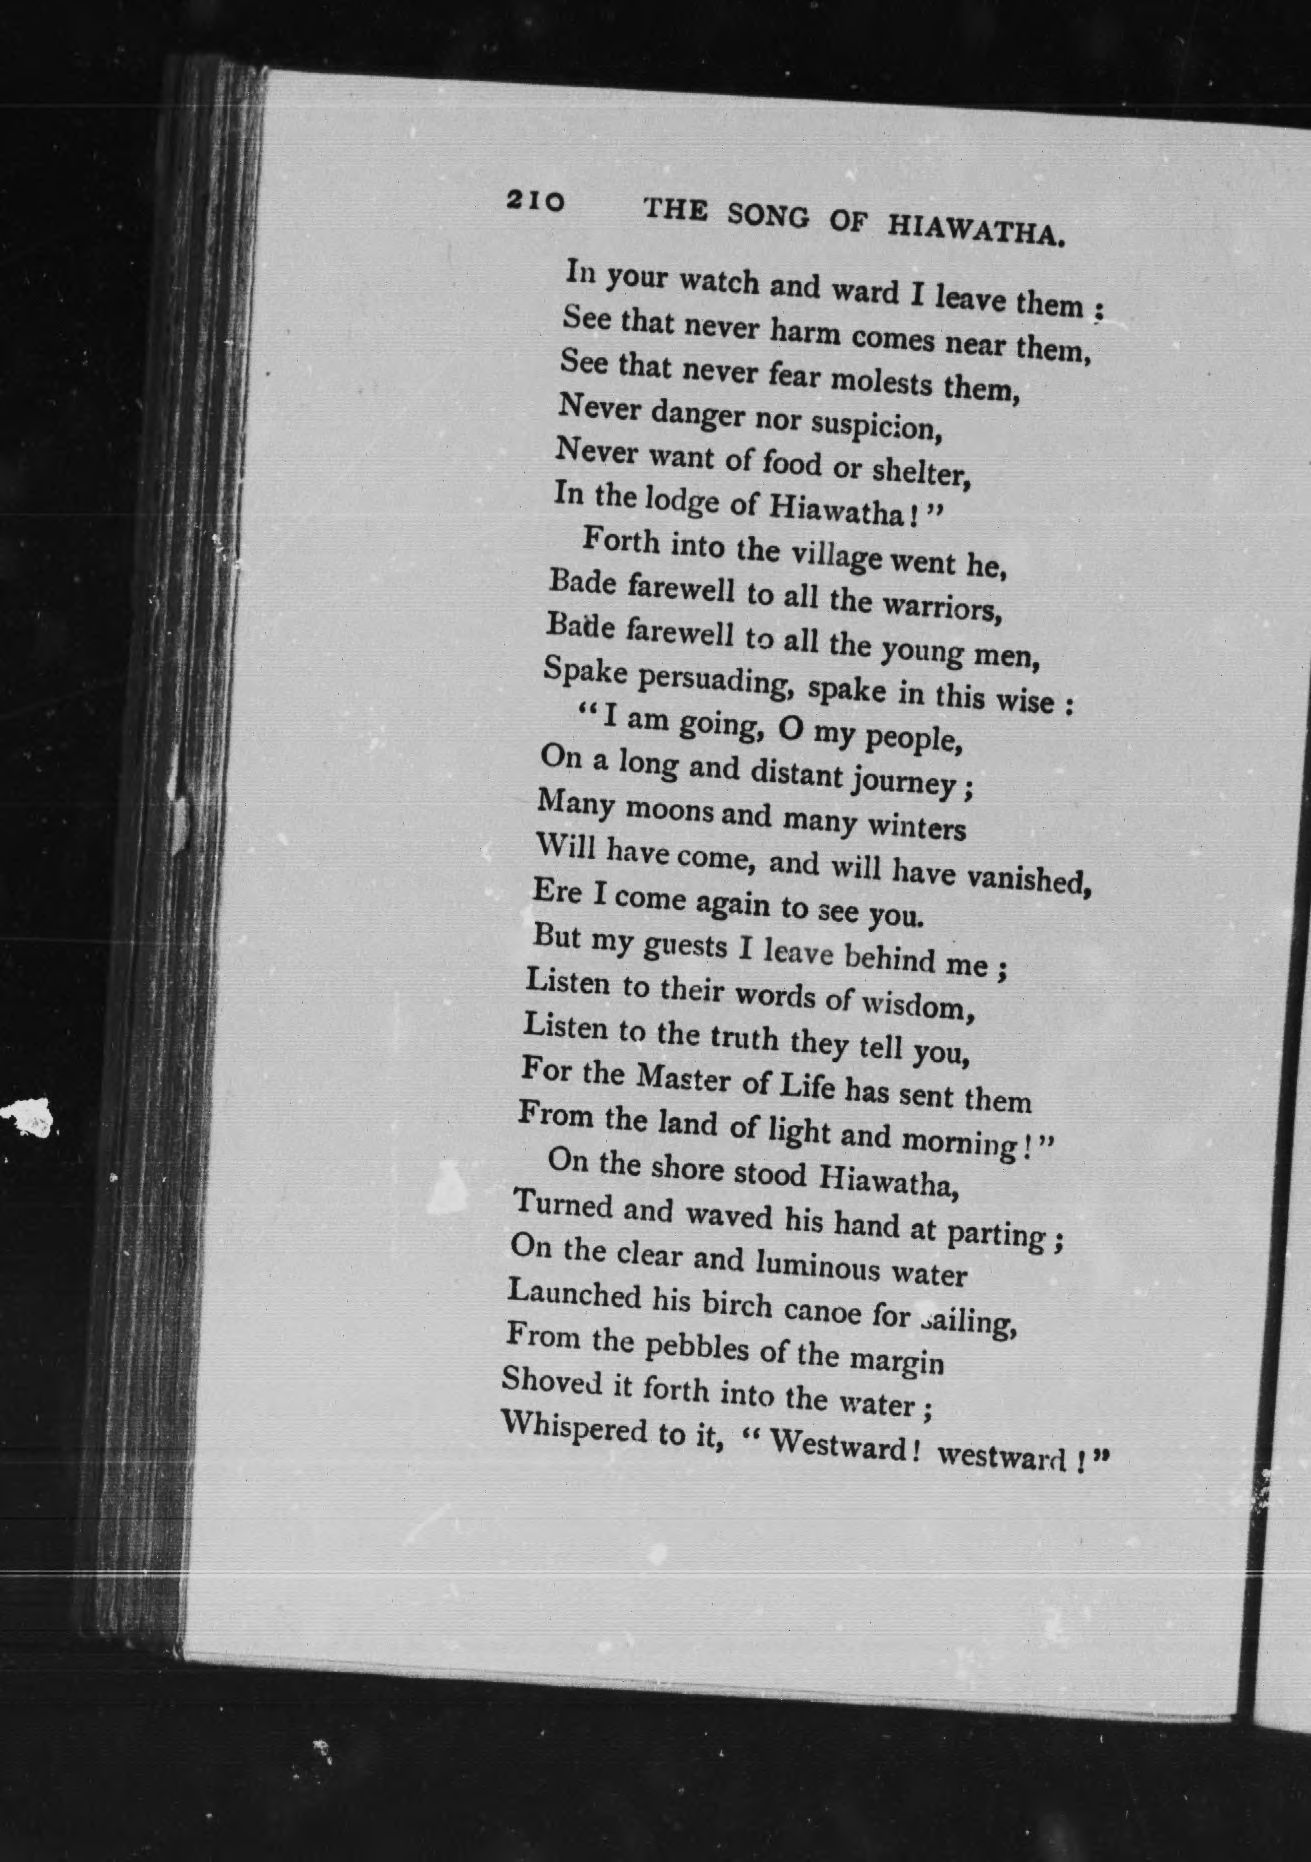 210 THE SONG OF HIAWATHA.
In your watch and ward I leave them ;
See that never harm comes near them,
See that never fear molests them,
Never danger nor suspicion,
Never want of food or shelter,
In the lodge of Hiawatha! ”
Forth into the village went he,
Bade farewell to all the warriors,
Bade farewell to all the young men,
Spake persuading, spake in this wise :
“I am going, O my people,
On a long and distant journey ;
Many moons and many winters
Will have come, and will have vanished,
Ere I come again to see you.
But my guests I leave behind me ;
Listen to their words of wisdom,
Listen to the truth they tell you,
For the Master of Life has sent them
From the land of light and morning! ”
On the shore stood Hiawatha,
Turned and waved his hand at parting ;
On the clear and luminous water
Launched his birch canoe for sailing,
From the pebbles of the margin
Shoved it forth into the water ;
Whispered to it, “ Westward! westward ! ”